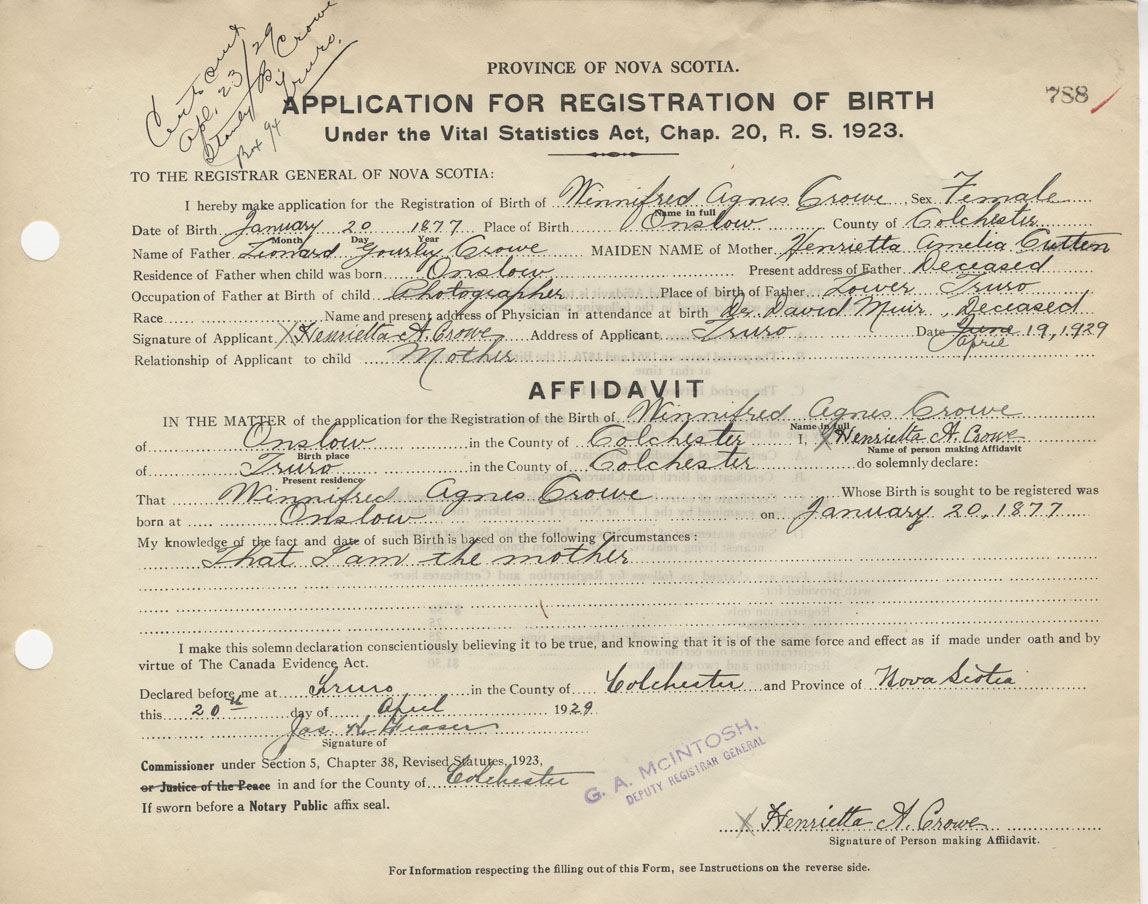 Cert sent
Apl. 23/29
Stanley B. Crowe
Box 94 Truro.
PROVINCE OF NOVA SCOTIA.
788
APPLICATION FOR REGISTRATION OF BIRTH
Under the Vital Statistics Act, Chap. 20, R. S. 1923.
TO THE REGISTRAR GENERAL OF NOVA SCOTIA:
I hereby make application for the Registration of Birth of Winnifred Agnes Crowe Sex Female
Name in full
Date of Birth January 20 1877 Place of Birth Onslow County of Colchester
Month Day Year
Name of Father Leonard Gourley Crowe MAIDEN NAME of Mother Henrietta Amelia Cutten
Residence of Father when child was born Onslow Present address of Father Deceased
Occupation of Father at Birth of child Photographer Place of birth of Father Lower Truro
Race Name and present address of Physician in attendance at birth Dr. David Muir, Deceased
Signature of Applicant X Henrietta A. Crowe Address of Applicant Truro Date June 19, 1929
April
Relationship of Applicant to child Mother
AFFIDAVIT
IN THE MATTER of the application for the Registration of the Birth of Winnifred Agnes Crowe
Name in full
of Onslow in the County of Colchester I, X Henrietta A. Crowe
Birth place Name of person making Affidavit
of Truro in the County of Colchester do solemnly declare:
Present residence
That Winnifred Agnes Crowe Whose Birth is sought to be registered was
born at Onslow on January 20, 1877
My knowledge of the fact and date of such Birth is based on the following Circumstances:
That I am the mother
I make this solemn declaration conscientiously believing it to be true, and knowing that it is of the same force and effect as if made under oath and by
virtue of The Canada Evidence Act.
Declared before me at Truro in the County of Colchester and Province of Nova Scotia
this 20th day of April 1929
Jas.
Signature of
Commissioner under Section 5, Chapter 38, Revised Statutes, 1923,
or Justice of the Peace in and for the County of Colchester
If sworn before a Notary Public affix seal.
G. A. MCINTOSH.
DEPUTY REGISTRAR GENERAL
X Henrietta A. Crowe
Signature of Person making Affiidavit.
For Information respecting the filling out of this Form, see Instructions on the reverse side.